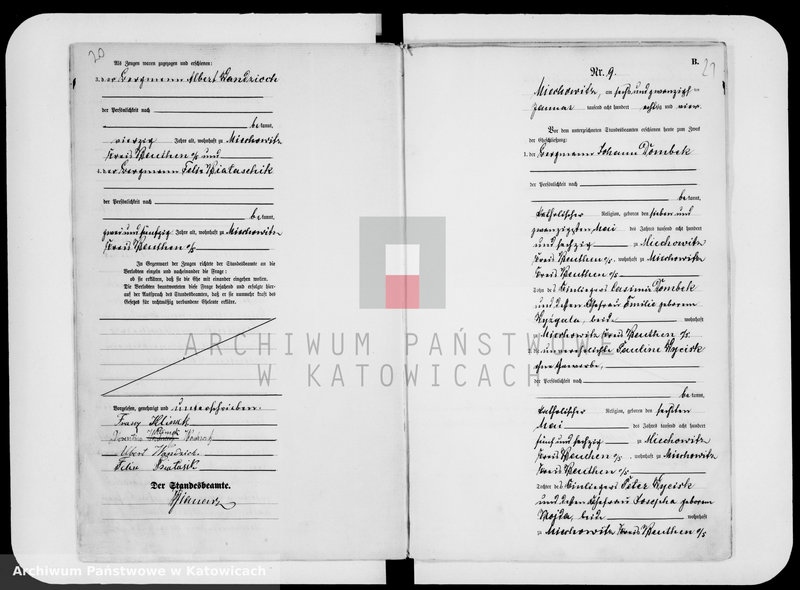 20
Als Zeugen waren zugezogen und erschienen:
3. der Bergmann Albert Handrisch
der Persönlichkeit nach
be kannt,
vierzig Jahre alt, wohnhaft zu Miechowitz
Kreis Beuthen o/s und
4. der Bergmann Felix Biataschik
der Persönlichkeit nach
be kannt,
zwei und fünfzig Jahre alt, wohnhaft zu Miechowitz
Kreis Beuthen o/s
In Gegenwart der Zeugen richtete der Standesbeamte an die
Verlobten einzeln und nacheinander die Frage:
ob sie erklären, daß sie die Ehe mit einander eingehen wollen.
Die Verlobten beantworteten diese Frage bejahend und erfolgte hier-
auf der Ausspruch des Standesbeamten, daß er sie nunmehr kraft des
Gesetzes für rechtmäßig verbundene Eheleute erkläre.
Vorgelesen, genehmigt und unterschrieben.
Franz Klimek
Albert Handrisch
Felix
Der Standesbeamte.
B.
21
Nr. 9.
Miechowitz, am sechs und zwanzigsten
Januar tausend acht hundert achtzig und vier.
Vor dem unterzeichneten Standesbeamten erschienen heute zum Zweck
der Eheschließung:
1. der Bergmann Johann Dombek
der Persönlichkeit nach
be kannt,
katholischer Religion, geboren den sieben und
zwanzigsten Mai des Jahres tausend acht hundert
und sechzig zu Miechowitz
Kreis Beuthen o/s, wohnhaft zu Miechowitz
Kreis Beuthen o/s
Sohn des Einliegers Casimir Dombek
und dessen Ehefrau Emilie geborenen
beide wohnhaft
zu Miechowitz Kreis Beuthen o/s.
2. die unverehelichte Pauline Kycisk
ohne Gewerbe,
der Persönlichkeit nach
be kannt,
katholischer Religion, geboren den sechsten
Mai des Jahres tausend acht hundert
fünf und sechzig zu Miechowitz
Kreis Beuthen o/s, wohnhaft zu Miechowitz
Kreis Beuthen o/s
Tochter des Einliegers Peter Kycisk
und dessen Ehefrau Josepha geborenen
Wojda, beide wohnhaft
zu Miechowitz Kreis Beuthen o/s
ARCHIWUM PAŃSTWOWE
W KATOWICACH
Archiwum Państwowe w Katowicach